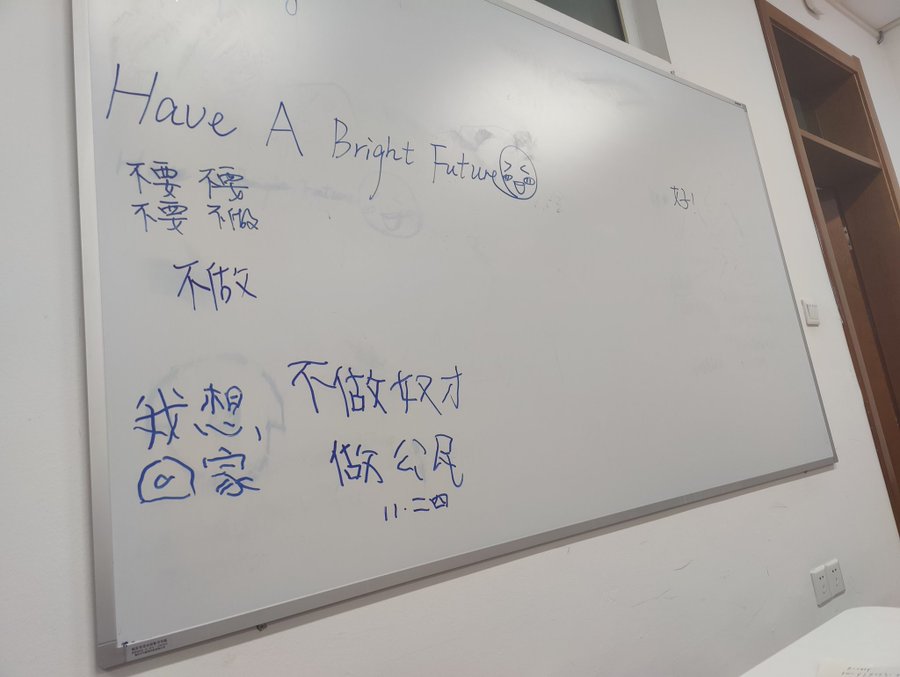 Have A Bright Future
好!
不要 不要
不要 不做
不做
我想,
回家
不做奴才
做公民
11.二四